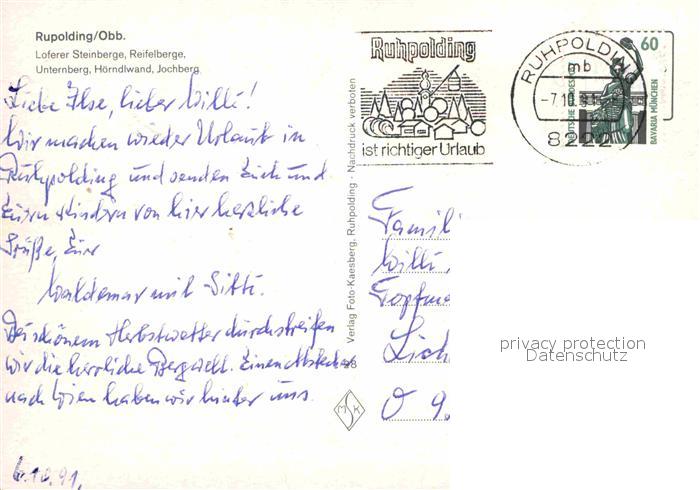 Rupolding/Obb.
Loferer Steinberge, Reifelberge,
Unternberg, Hörndlwand, Jochberg
Liebe Ilse, lieber Willi!
Wir machen wieder Urlaub in
Ruhpolding und senden Euch und
Euren Kindern von hier herzliche
Grüße, Euer
Waldemar mit Sitti.
Bei schönem Herbstwetter durchstreifen
wir die herrliche Bergwelt. Einen Abstecher
nach Wien haben wir hinter uns.
6.10.91.
Verlag Foto-Kaesberg, Ruhpolding · Nachdruck verboten
MSK
Ruhpolding
ist richtiger Urlaub
RUHPOLDING
mb
-7.10.91
8222
60
DEUTSCHE BUNDESPOST
BAVARIA MÜNCHEN
Famil
Willi
Topfm
Lich
O 9.
privacy protection
Datenschutz